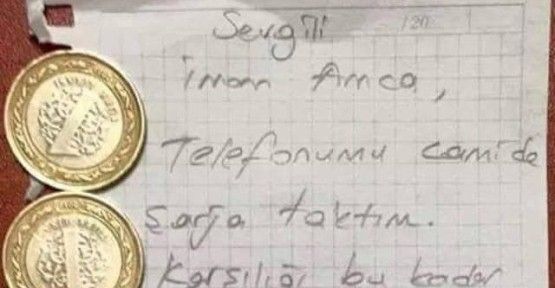 /20
Sevgili
imam Amca,
Telefonumu camide
şarja taktım.
Karşılığı bu kadar